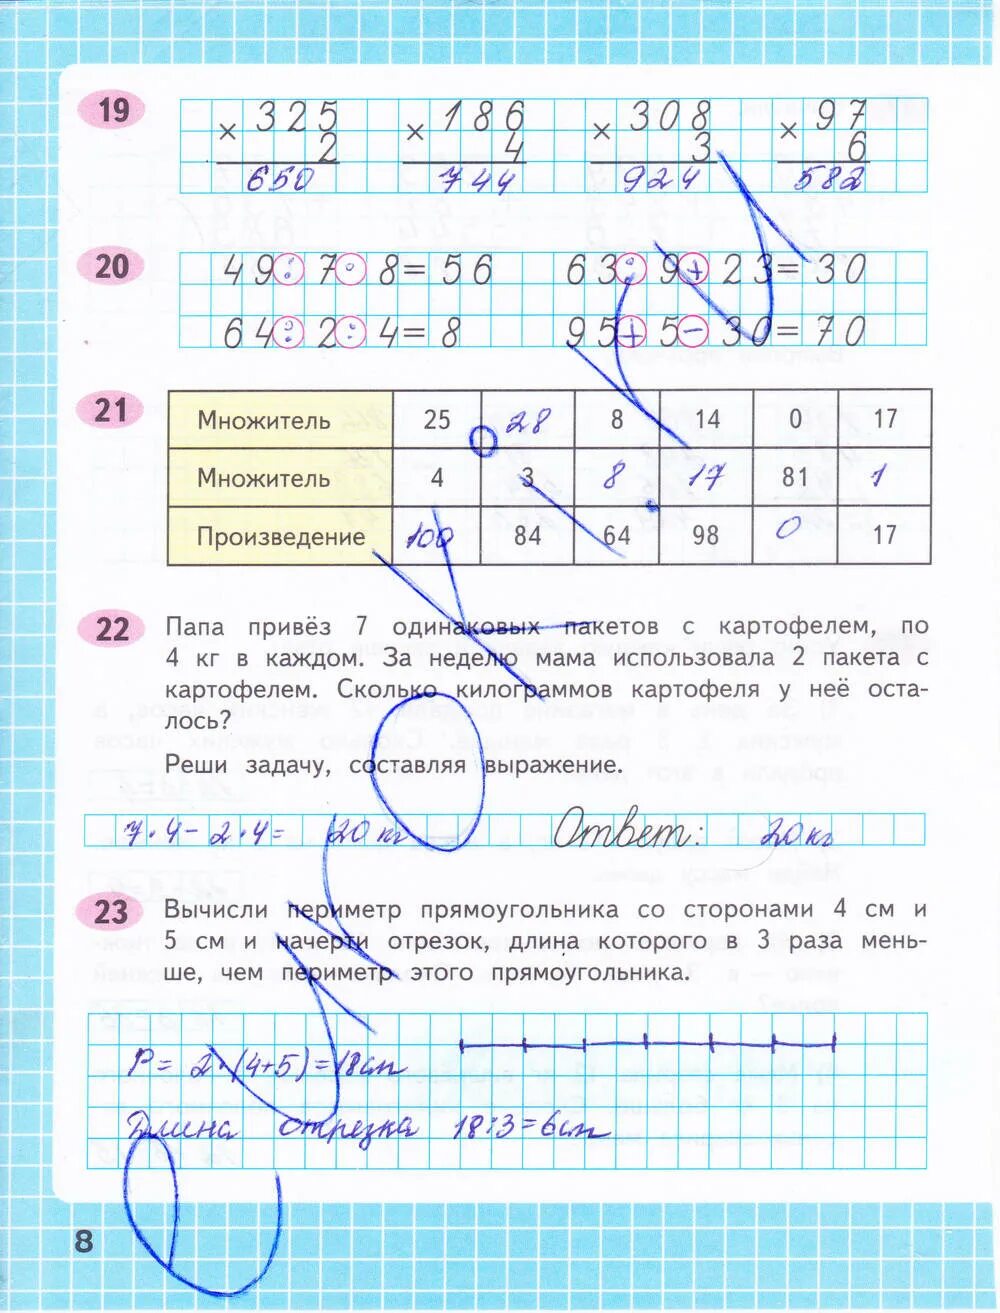 19
× 325 × 186 × 308 × 97
2 4 3 6
650 744 924 582
20
49 : 7 · 8 = 56 63 : 9 + 23 = 30
64 : 2 : 4 = 8 95 + 5 − 30 = 70
21
Множитель 25 28 8 14 0 17
Множитель 4 3 8 17 81 1
Произведение 100 84 64 98 0 17
22
Папа привёз 7 одинаковых пакетов с картофелем, по
4 кг в каждом. За неделю мама использовала 2 пакета с
картофелем. Сколько килограммов картофеля у неё оста-
лось?
Реши задачу, составляя выражение.
7·4−2·4= 20 кг Ответ: 20 кг
23
Вычисли периметр прямоугольника со сторонами 4 см и
5 см и начерти отрезок, длина которого в 3 раза мень-
ше, чем периметр этого прямоугольника.
P = 2·(4+5)=18см
Длина отрезка 18:3=6см
8